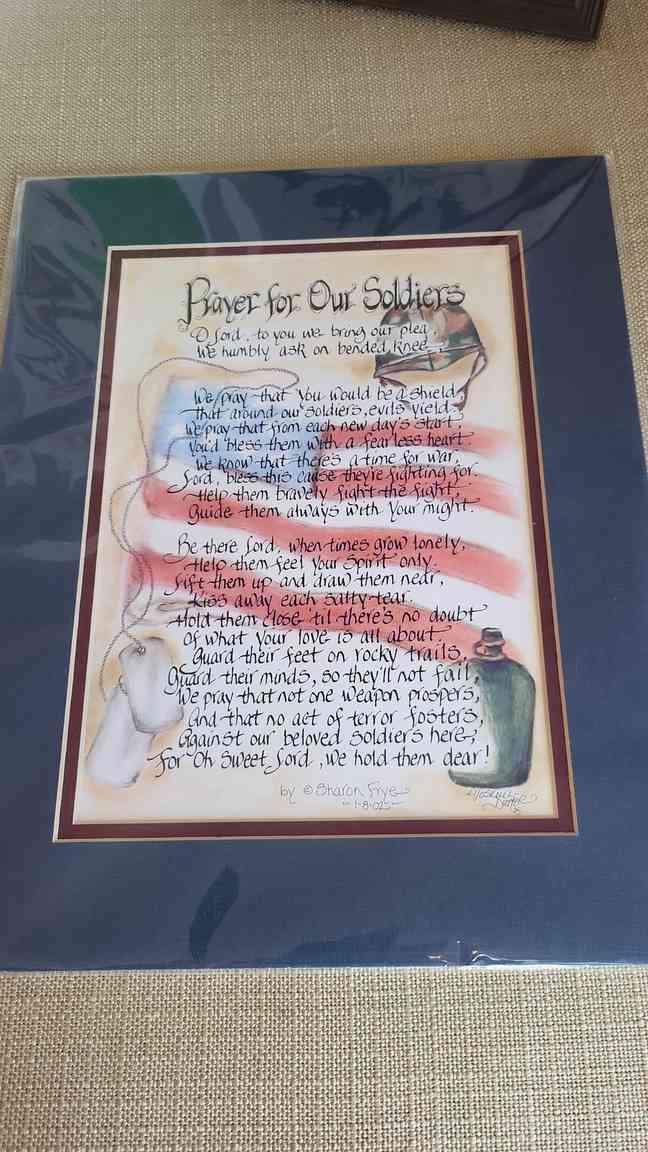 Prayer for Our Soldiers
O Lord, to you we bring our plea,
We humbly ask on bended knee.
We pray that You would be a shield,
that around our soldiers, evils yield.
We pray that from each new day's start,
You'd bless them with a fearless heart.
We know that there's a time for war,
Lord, bless this cause they're fighting for.
Help them bravely fight the fight,
Guide them always with Your might.
Be there Lord, when times grow lonely,
Help them feel Your Spirit only.
Lift them up and draw them near,
Kiss away each salty tear.
Hold them close 'til there's no doubt
Of what Your love is all about.
Guard their feet on rocky trails,
Guard their minds, so they'll not fail,
We pray that not one weapon prospers,
And that no act of terror fosters,
Against our beloved soldiers here,
For Oh Sweet Lord, we hold them dear!
by © Sharon Frye
1-8-02